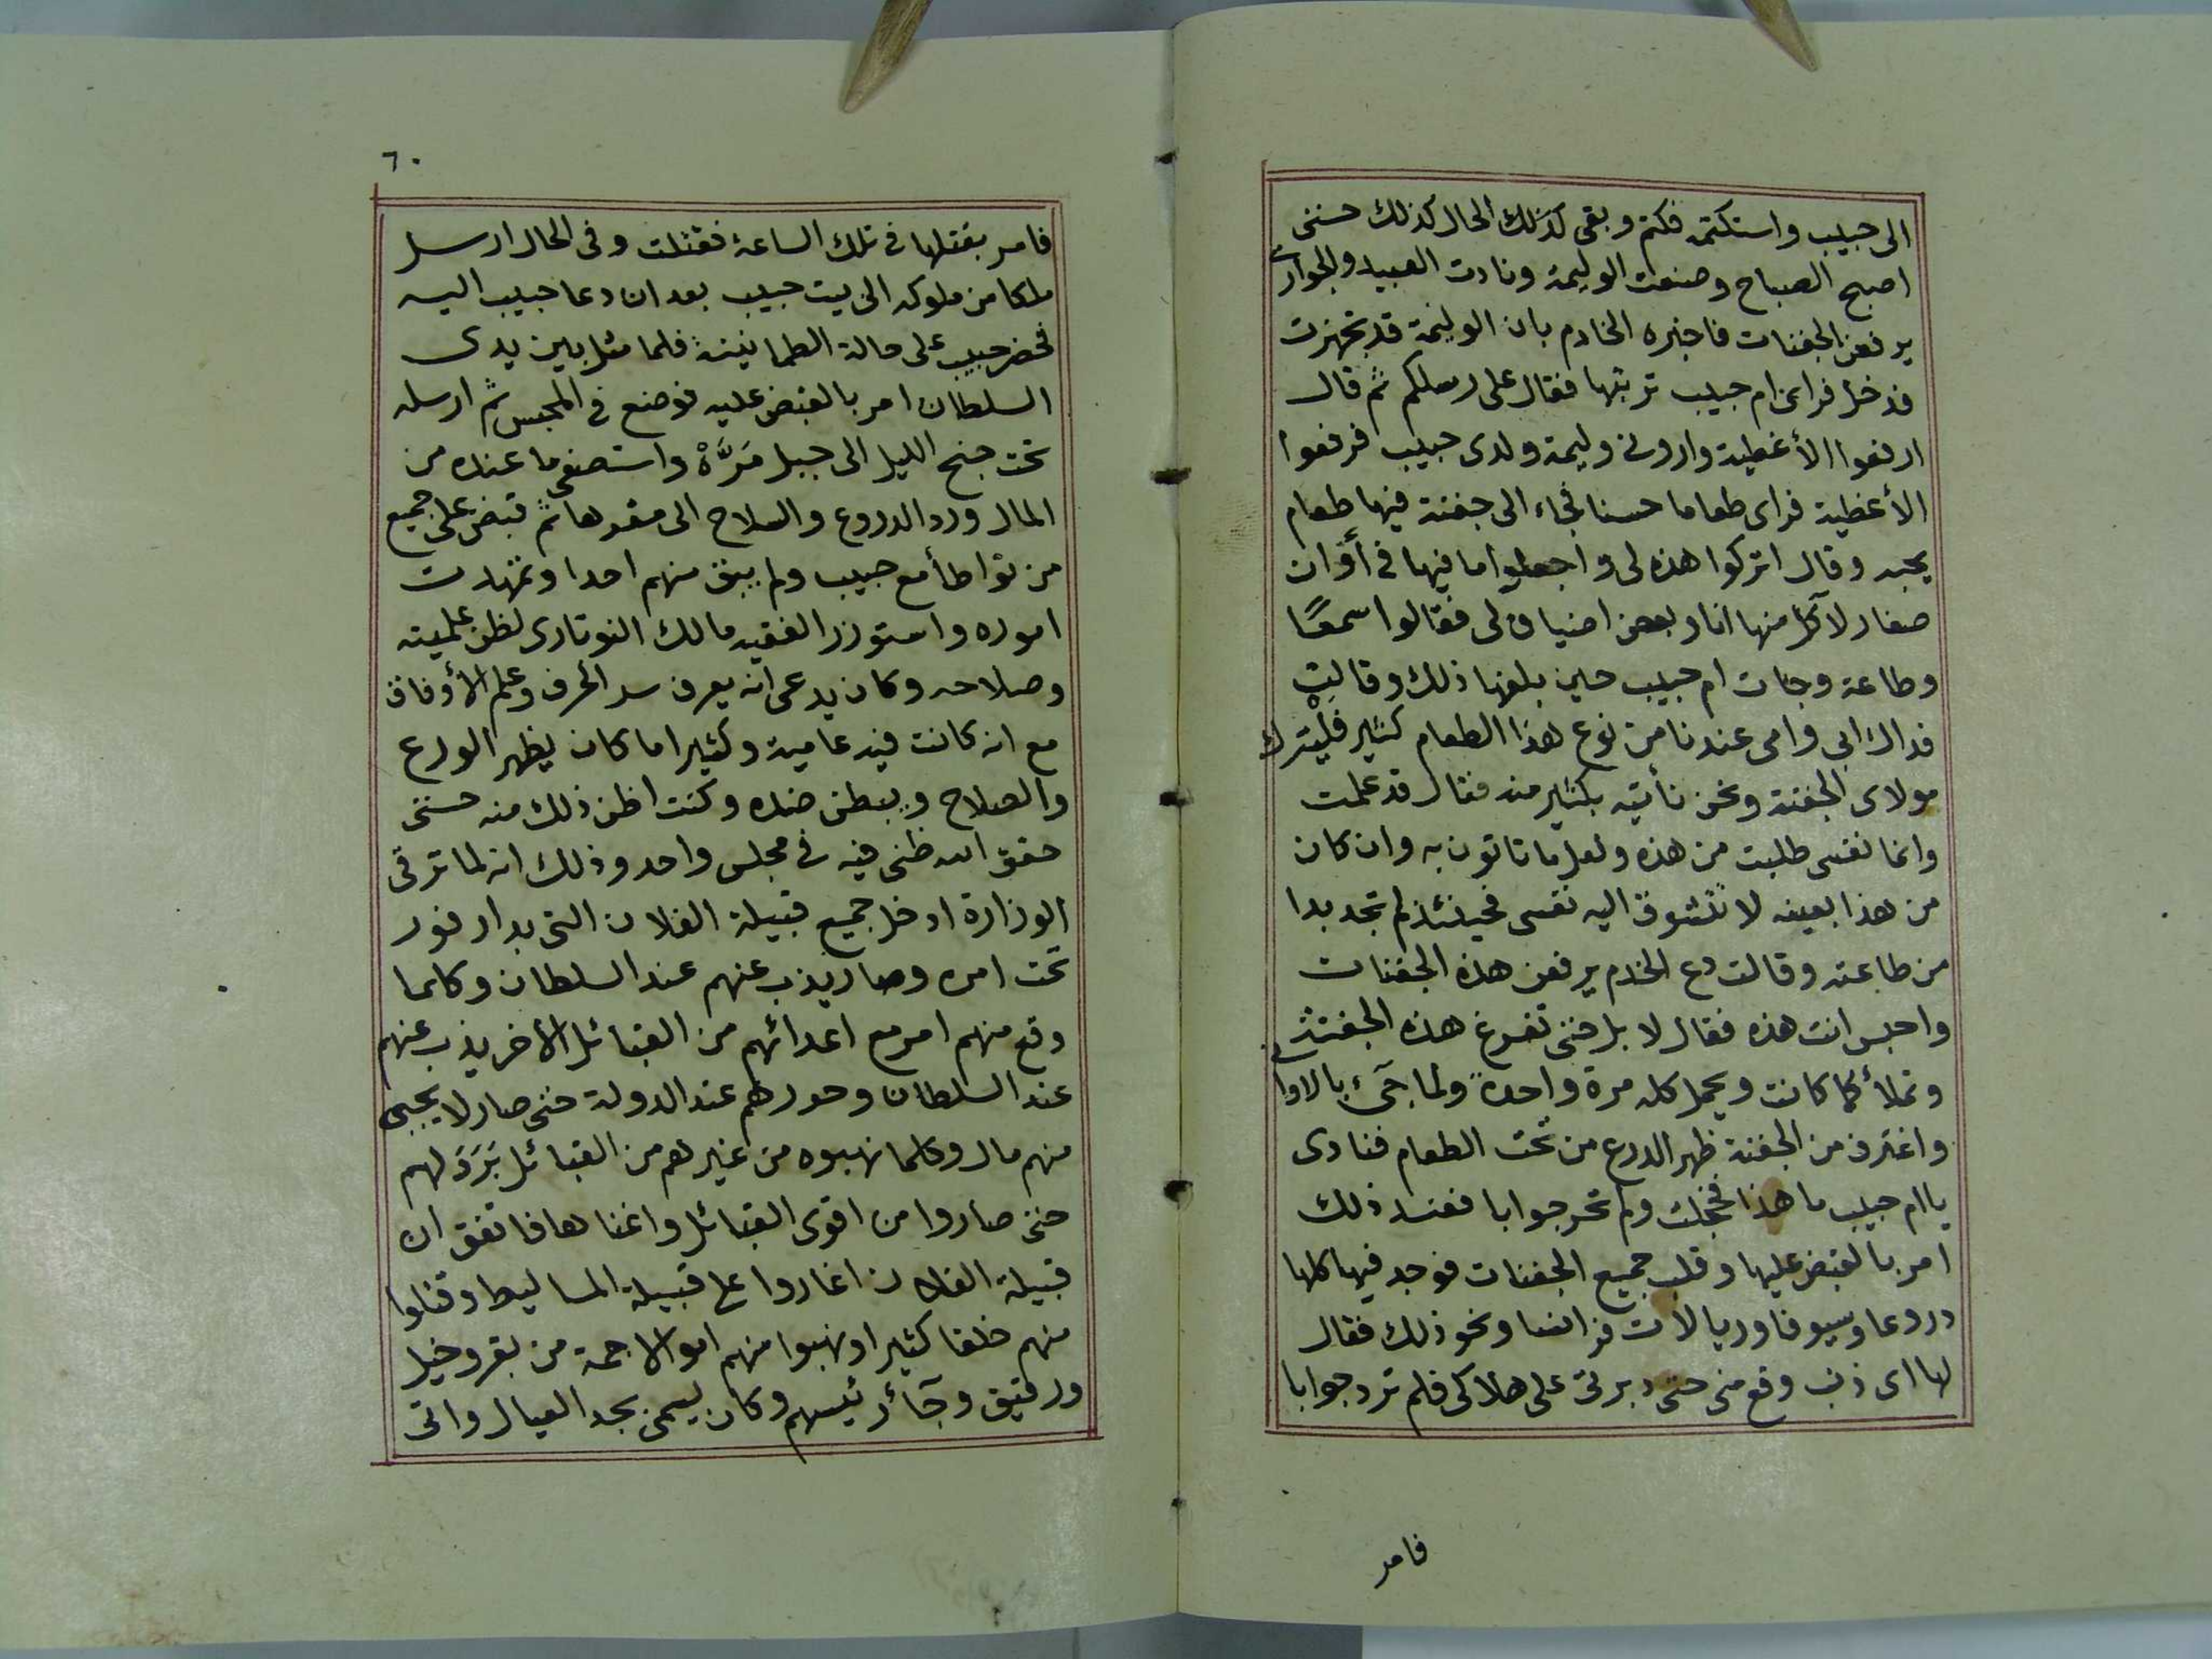 الى حبيب واستكتمه فكتم وبقى كذلك الحال كذلك حتى
اصبح الصباح وصنعت الوليمة ونادت العبيد والجوارى
يرفعن الجفنات فاخبره الخادم بان الوليمة قد تجهزت
فدخل فراى ام حبيب تربتها فقال على رسلكم ثم قال
ارفعوا الأغطية وارونى وليمة ولدى حبيب فرفعوا
الأغطية فراى طعاما حسنا فجاء الى جفنة فيها طعام
يحبه وقال اتركوا هذه لى واجعلوا ما فيها فى أوان
صغار لآكل منها انا وبعض اضيافى لى فقالوا سمعًا
وطاعة وجات ام حبيب حين بلغها ذلك وقالت
فداك ابى وامى عندنا من نوع هذا الطعام كثير فليترك
مولاى الجفنة ونحن نأتيه بكثير منه فقال قد علمت
وانما نفسى طلبت من هذه ولعل ما تاتون به وان كان
من هذا بعينه لا تتشوق اليه نفسى فحينئذ لم تجد بدا
من طاعته وقالت دع الخدم يرفعن هذه الجفنات
واحبس انت هذه فقال لا بل حتى تفرغ هذه الجفنة
وتملأ كما كانت ويحمل كله مرة واحدة ولما جئ بالاوانى
واغترف من الجفنة ظهر الدرع من تحت الطعام فنادى
يا ام حبيب ما هذا فخجلت ولم تحر جوابا فعند ذلك
امر بالقبض عليها وقلب جميع الجفنات فوجد فيها كلها
دروعا وسيوفا وريالات فرانسا ونحو ذلك فقال
لها اى ذنب وقع منى حتى دبرتى على هلاكى فلم ترد جوابا
فامر
٦٠
فامر بقتلها فى تلك الساعة فقتلت وفى الحال ارسل
ملكا من ملوكه الى بيت حبيب بعد ان دعا حبيب اليه
فحضر حبيب على حالة الطمانينة فلما مثل بين يدى
السلطان امر بالقبض عليه فوضع فى المحبس ثم ارسله
تحت جنح الليل الى جبل مَرَّةْ واستصفى ما عنده من
المال ورد الدروع والسلاح الى مقرها ثم قبض على جميع
من تواطأ مع حبيب ولم يبق منهم احدا وتمهدت
اموره واستوزر الفقيه مالك الفوتاوى لظن علميته
وصلاحه وكان يدعى انه يعرف سر الحرف وعلم الأوفاق
مع انه كانت فيه عامية وكثيرا ما كان يظهر الورع
والصلاح ويبطن ضده وكنت اظن ذلك منه حتى
حقق الله ظنى فيه فى مجلس واحد وذلك انه لما ترقى
الوزارة ادخل جميع قبيلة الفلان التى بدارفور
تحت امره وصار يذب عنهم عند السلطان وكلما
وقع منهم امر مع اعدائهم من القبائل الأخر يذب عنهم
عند السلطان وحورهم عند الدولة حتى صار لا يجبى
منهم مال وكلما نهبوه من غيرهم من القبائل بَرَدَ لهم
حتى صاروا من اقوى القبائل واغناها فاتفق ان
قبيلة الفلان اغاروا على قبيلة المساليط وقتلوا
منهم خلقا كثيرا ونهبوا منهم اموالا جمة من بقر وخيل
ورقيق وجآء رئيسهم وكان يسمى بجد العيال واتى